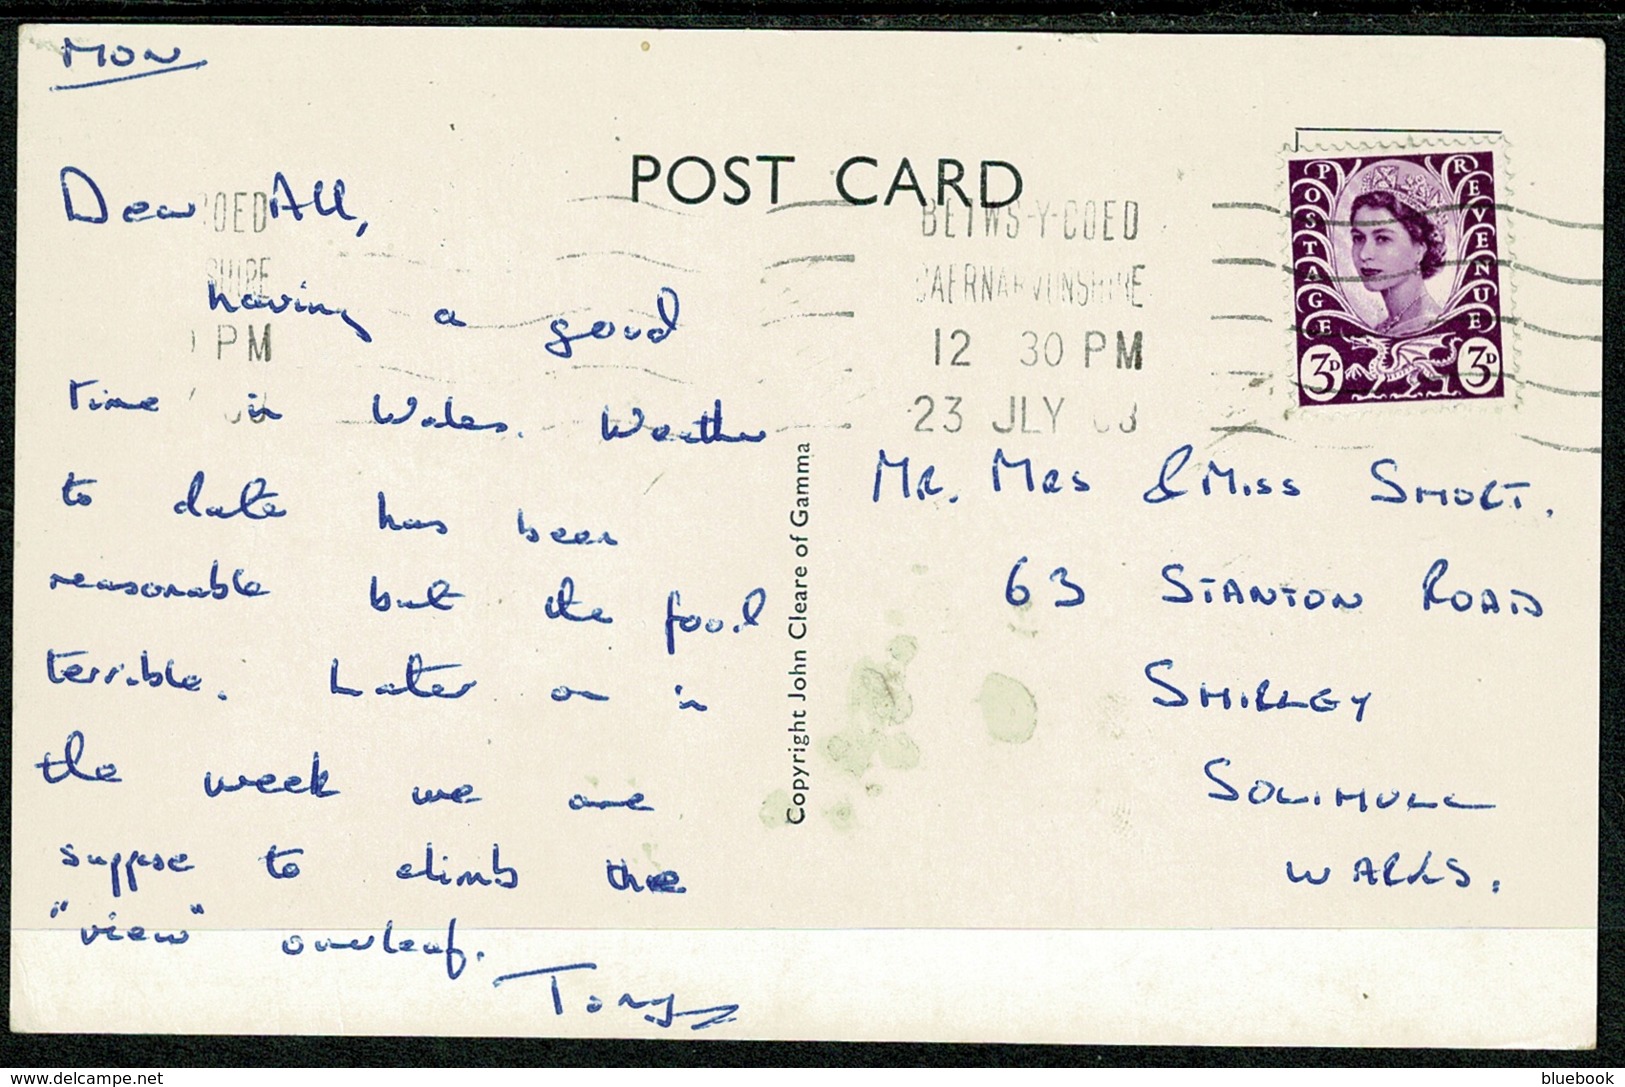 Mon
Dear All,
having a good
time in Wales. Weather
to date has been
reasonable but the food
terrible. Later on in
the week we are
suppose to climb the
"view" overleaf.
Tony
POST CARD
OED
SHIRE
PM
BETWS-Y-COED
CAERNARVONSHIRE
12 30 PM
23 JLY
POSTAGE REVENUE
3D 3D
Copyright John Cleare of Gamma
MR. MRS & MISS SHORT.
63 STANTON ROAD
SHIRLEY
SOLIHULL
WARKS.
delcampe.net
bluebook